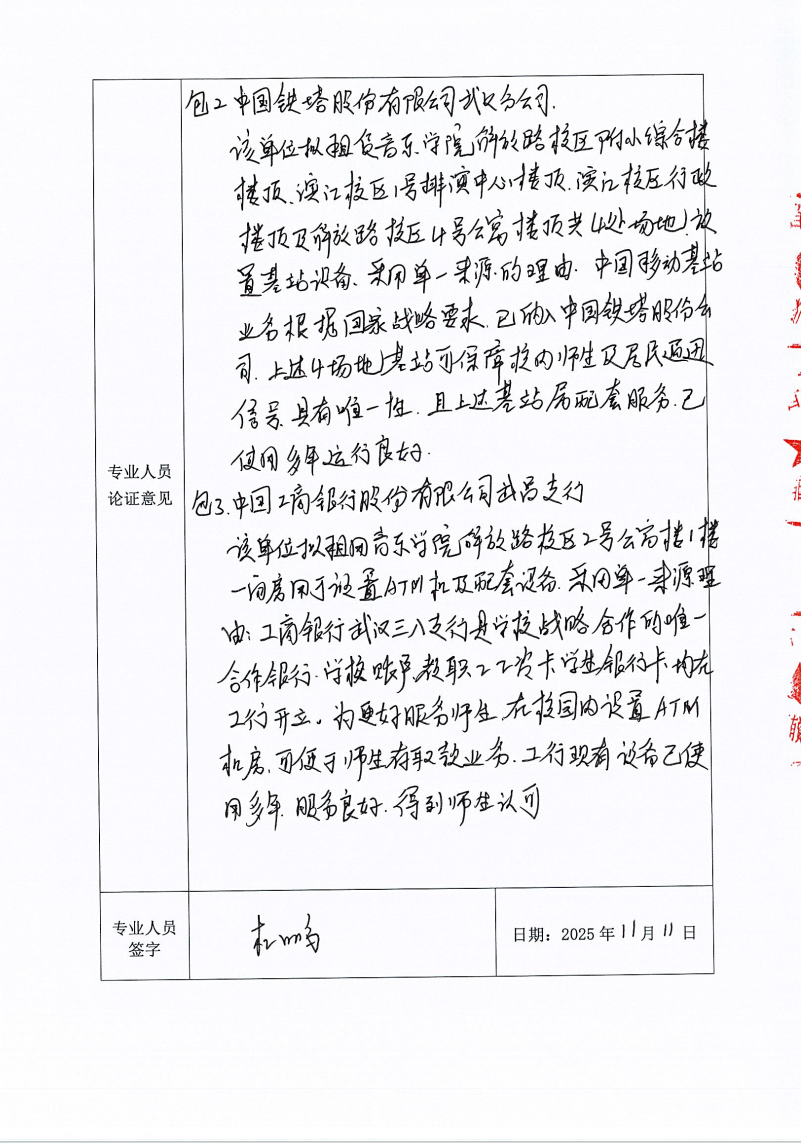 包2 中国铁塔股份有限公司武汉分公司.
该单位拟租赁音乐学院解放路校区附小综合楼
楼顶、滨江校区1号排演中心楼顶、滨江校区行政
楼顶及解放路校区4号公寓楼顶共(4处场地)放
置基站设备、采用单一来源的理由: 中国移动基站
业务根据国家战略要求, 已纳入中国铁塔股份公
司. 上述4场地基站可保障校内师生及居民通用
信号 具有唯一性. 且上述基站属配套服务. 已
使用多年运行良好.
专业人员
论证意见
包3. 中国工商银行股份有限公司武昌支行
该单位拟租用音乐学院解放路校区2号公寓楼1楼
一间房用于设置ATM机及配套设备. 采用单一来源理
由: 工商银行武汉三八支行是学校战略合作的唯一
合作银行. 学校账户,教职工工资卡学生银行卡均在
工行开立。为更好服务师生,在校园内设置ATM
机房,可便于师生存取款业务. 工行现有设备已使
用多年. 服务良好. 得到师生认可
专业人员
签字
日期: 2025 年 11 月 11 日